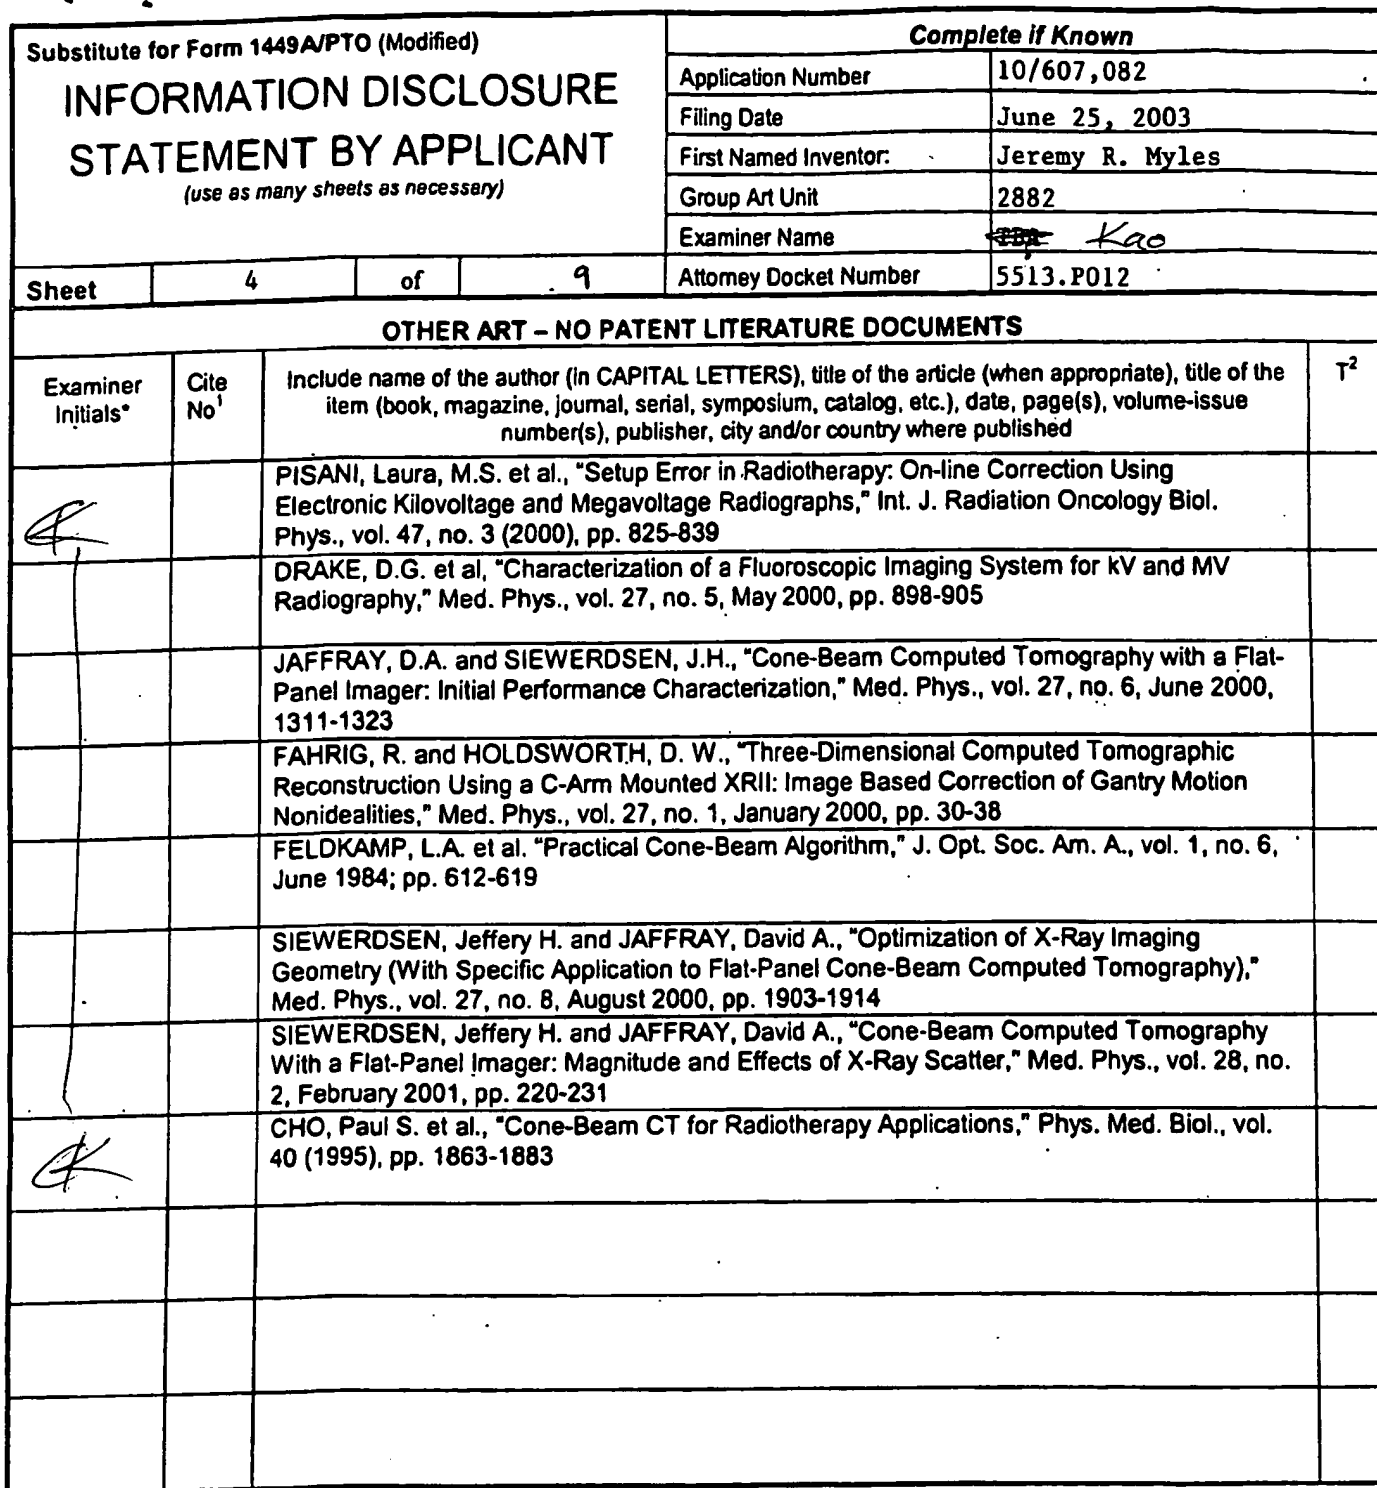 Substitute for Form 1449A/PTO (Modified)
INFORMATION DISCLOSURE
STATEMENT BY APPLICANT
(use as many sheets as necessary)
Sheet 4 of 9
Complete if Known
Application Number 10/607,082
Filing Date June 25, 2003
First Named Inventor: Jeremy R. Myles
Group Art Unit 2882
Examiner Name TBA Kao
Attorney Docket Number 5513.P012
OTHER ART – NO PATENT LITERATURE DOCUMENTS
Examiner Initials*
Cite No¹
Include name of the author (in CAPITAL LETTERS), title of the article (when appropriate), title of the
item (book, magazine, journal, serial, symposium, catalog, etc.), date, page(s), volume-issue
number(s), publisher, city and/or country where published
T²
PISANI, Laura, M.S. et al., "Setup Error in Radiotherapy: On-line Correction Using
Electronic Kilovoltage and Megavoltage Radiographs," Int. J. Radiation Oncology Biol.
Phys., vol. 47, no. 3 (2000), pp. 825-839
DRAKE, D.G. et al, "Characterization of a Fluoroscopic Imaging System for kV and MV
Radiography," Med. Phys., vol. 27, no. 5, May 2000, pp. 898-905
JAFFRAY, D.A. and SIEWERDSEN, J.H., "Cone-Beam Computed Tomography with a Flat-
Panel Imager: Initial Performance Characterization," Med. Phys., vol. 27, no. 6, June 2000,
1311-1323
FAHRIG, R. and HOLDSWORTH, D. W., "Three-Dimensional Computed Tomographic
Reconstruction Using a C-Arm Mounted XRII: Image Based Correction of Gantry Motion
Nonidealities," Med. Phys., vol. 27, no. 1, January 2000, pp. 30-38
FELDKAMP, L.A. et al. "Practical Cone-Beam Algorithm," J. Opt. Soc. Am. A., vol. 1, no. 6,
June 1984; pp. 612-619
SIEWERDSEN, Jeffery H. and JAFFRAY, David A., "Optimization of X-Ray Imaging
Geometry (With Specific Application to Flat-Panel Cone-Beam Computed Tomography),"
Med. Phys., vol. 27, no. 8, August 2000, pp. 1903-1914
SIEWERDSEN, Jeffery H. and JAFFRAY, David A., "Cone-Beam Computed Tomography
With a Flat-Panel Imager: Magnitude and Effects of X-Ray Scatter," Med. Phys., vol. 28, no.
2, February 2001, pp. 220-231
CHO, Paul S. et al., "Cone-Beam CT for Radiotherapy Applications," Phys. Med. Biol., vol.
40 (1995), pp. 1863-1883